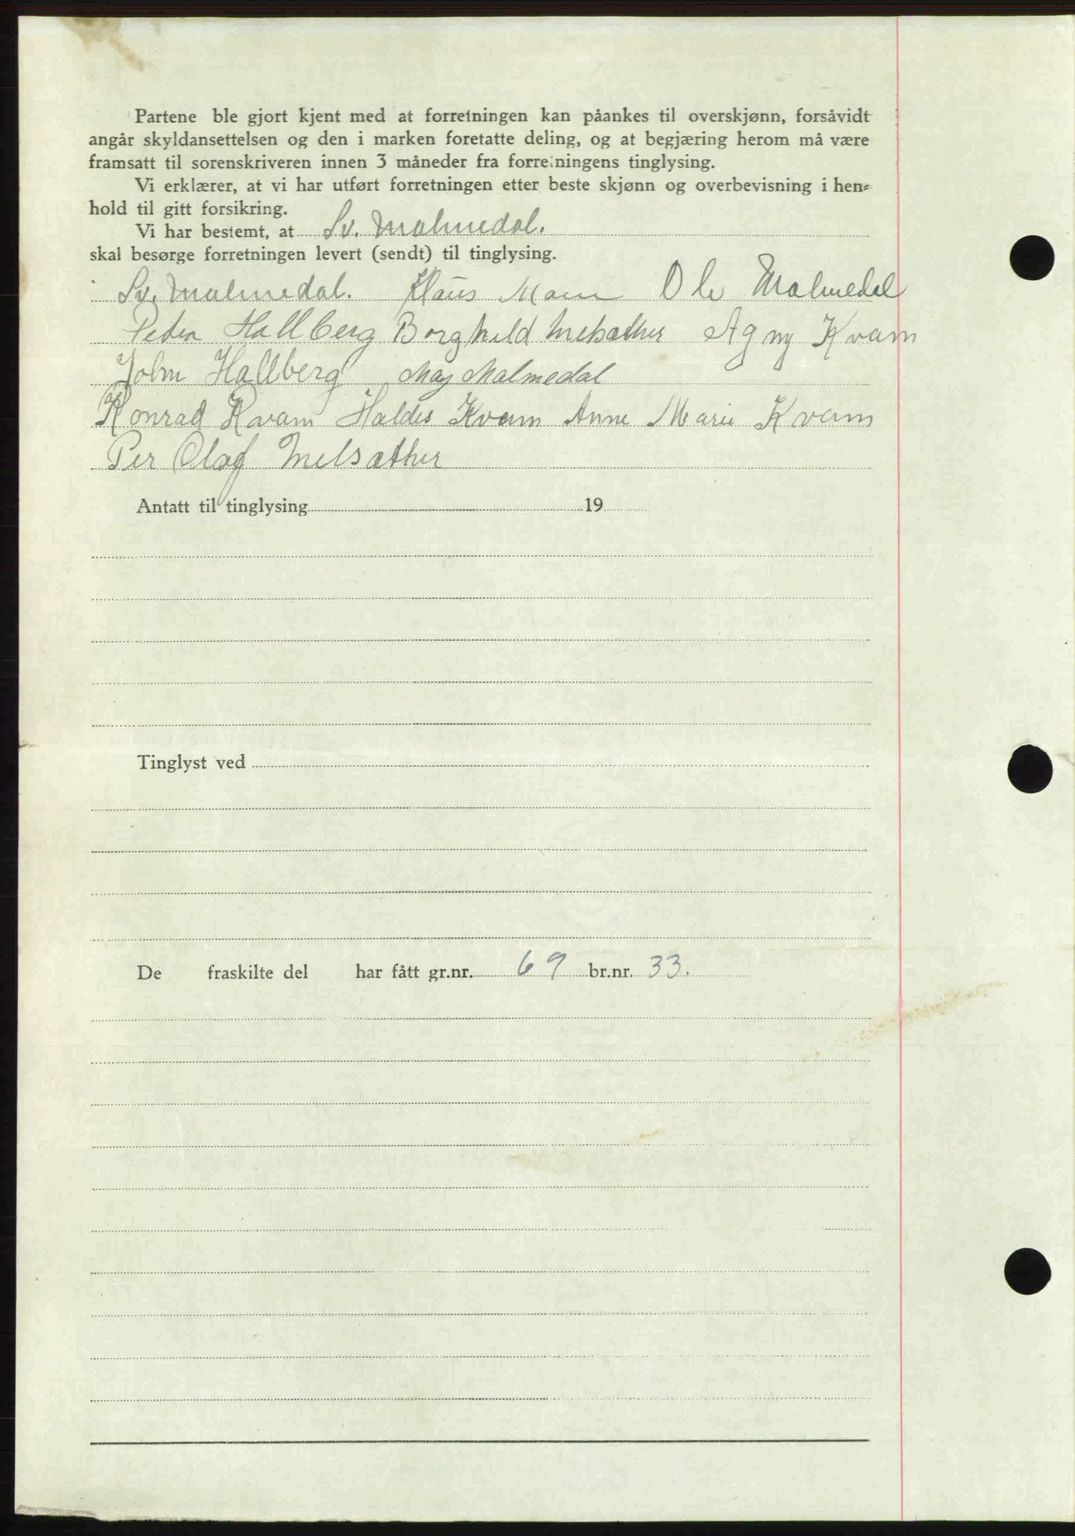 Partene ble gjort kjent med at forretningen kan påankes til overskjønn, forsåvidt
angår skyldansettelsen og den i marken foretatte deling, og at begjæring herom må være
framsatt til sorenskriveren innen 3 måneder fra forretningens tinglysing.
Vi erklærer, at vi har utført forretningen etter beste skjønn og overbevisning i hen-
hold til gitt forsikring.
Vi har bestemt, at Sv. Malmedal.
skal besørge forretningen levert (sendt) til tinglysing.
Sv. Malmedal. Klaus Ole Malmedal
Peder Hallberg Borghild Melsæther Agny Kvam
John Hallberg Maj Malmedal
Konrad Kvam Haldis Kvam Anne Marie Kvam
Per Olaf Melsæther
Antatt til tinglysing 19
Tinglyst ved
De fraskilte del har fått gr.nr. 69 br.nr. 33.